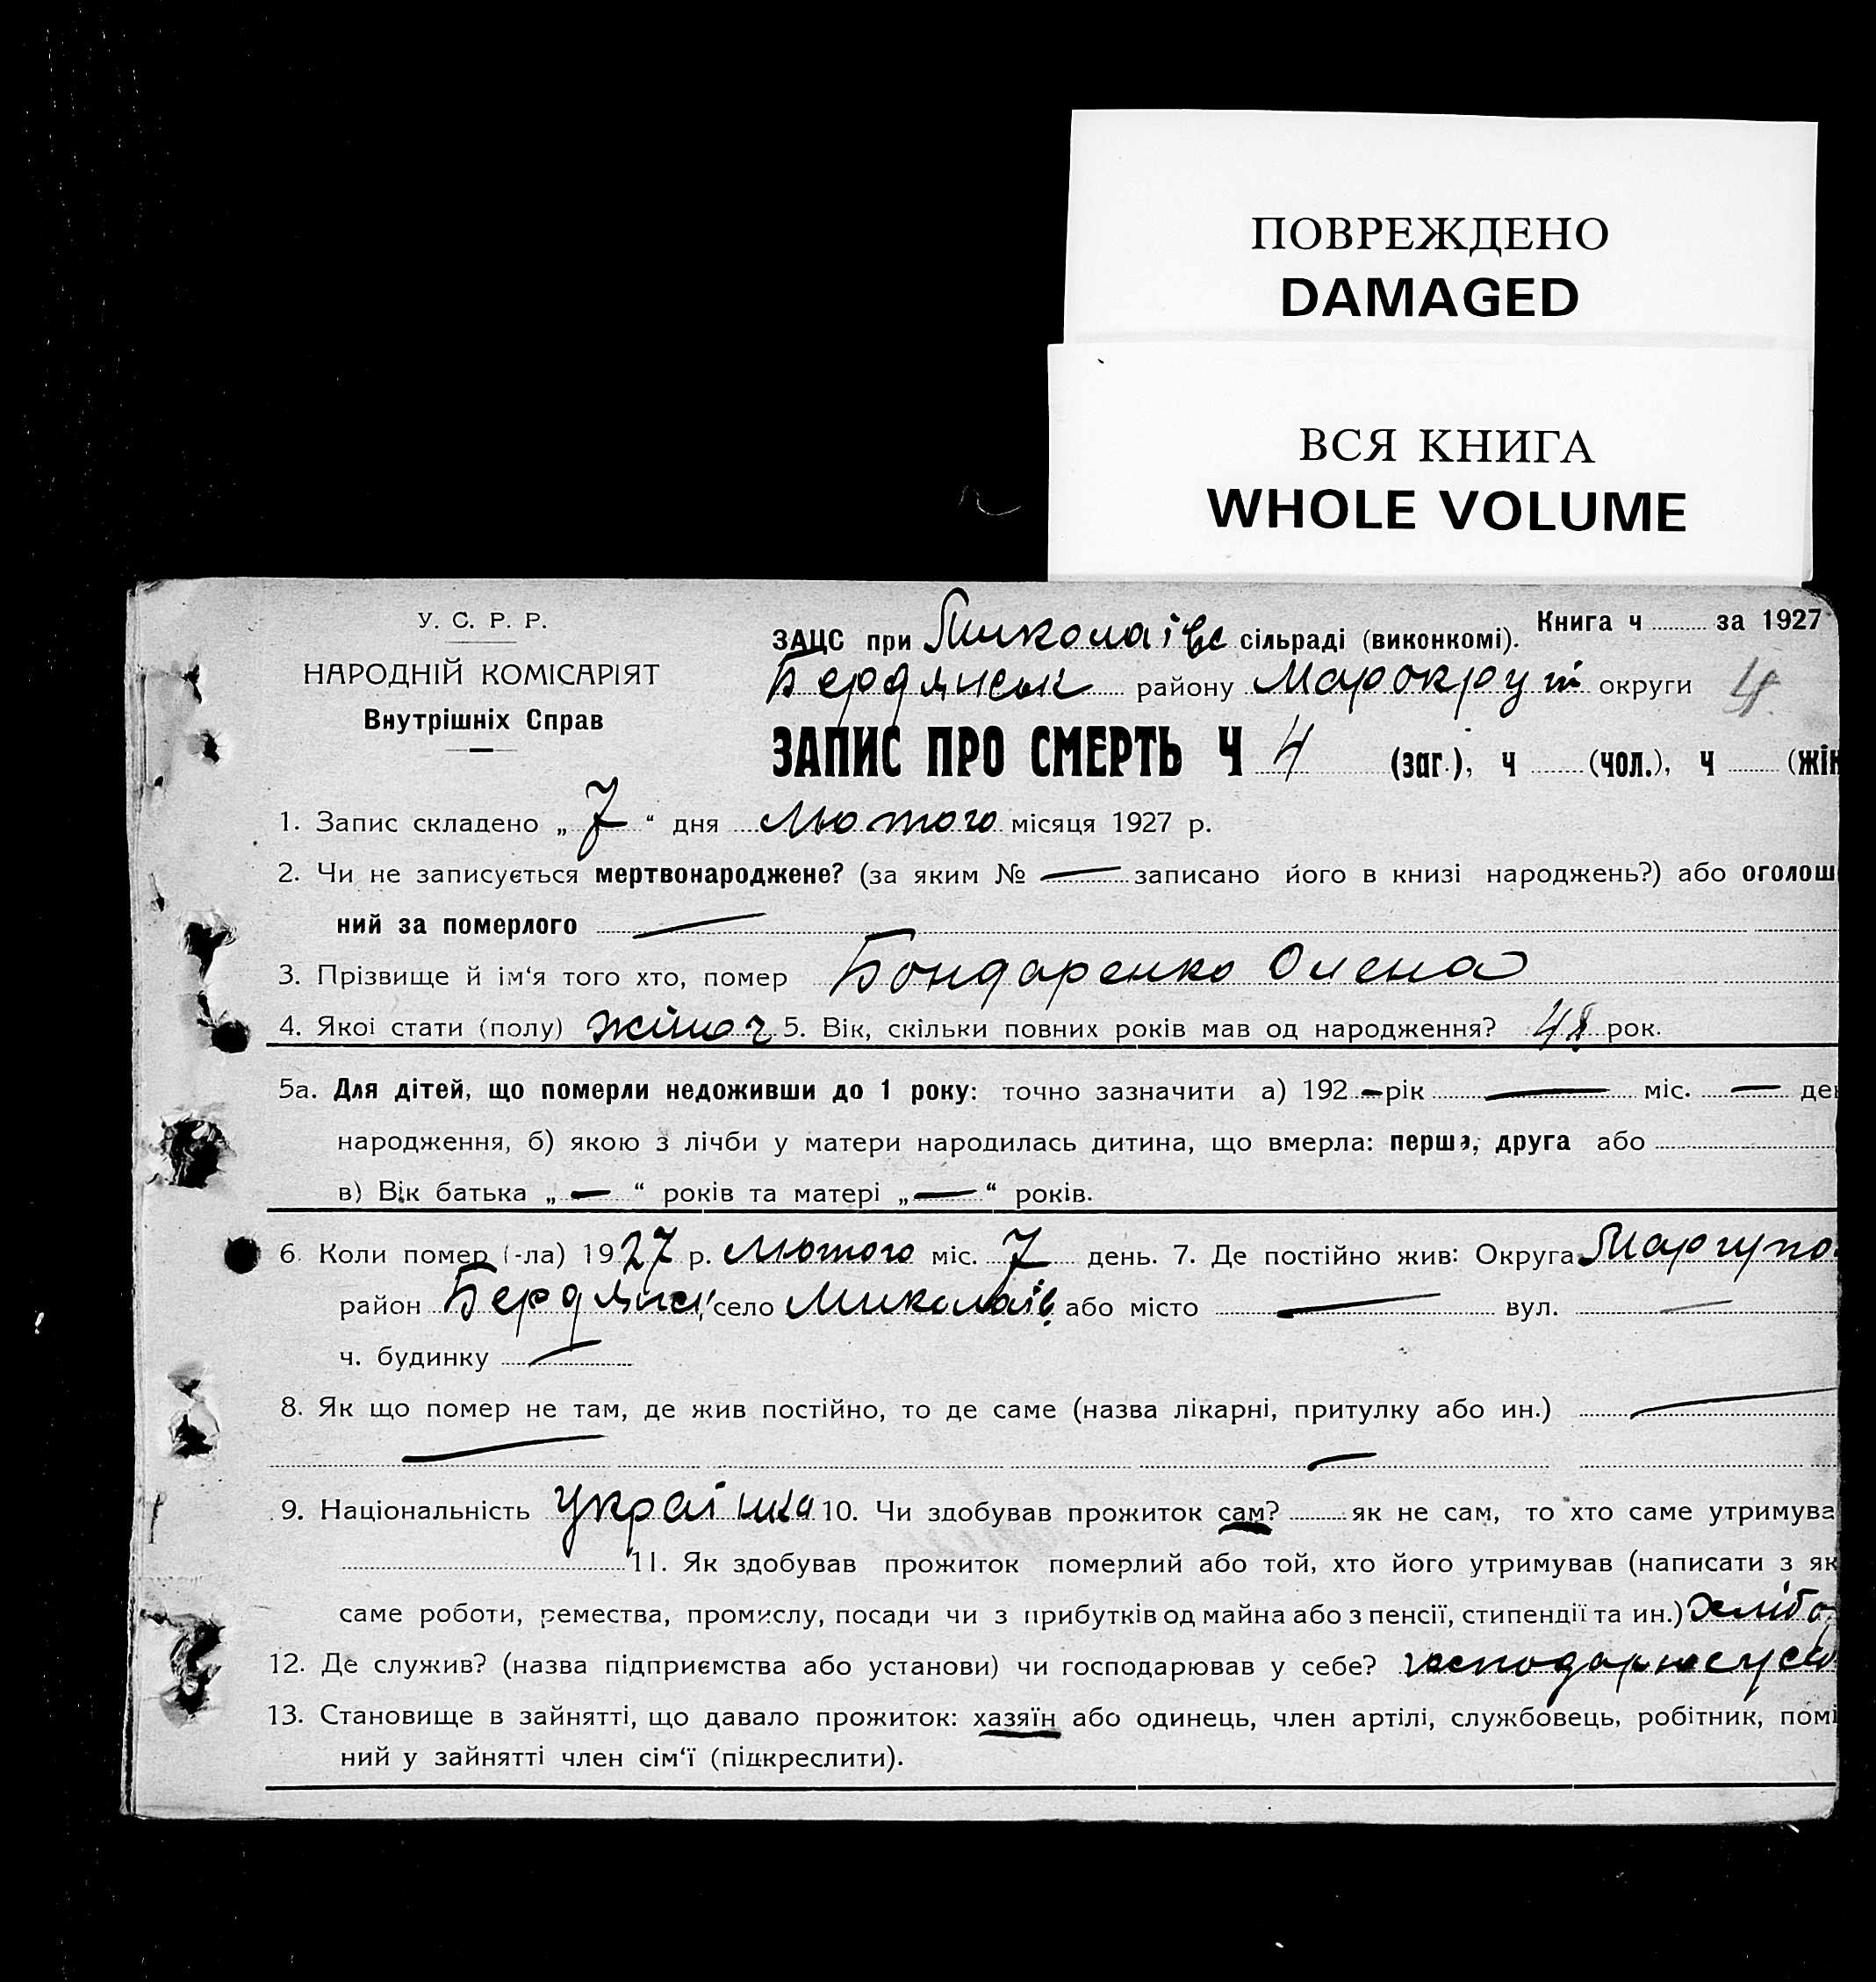 ПОВРЕЖДЕНО
DAMAGED
ВСЯ КНИГА
WHOLE VOLUME
У. С. Р. Р.
НАРОДНІЙ КОМІСАРІЯТ
Внутрішніх Справ
Книга ч ........ за 1927
ЗАЦС при Миколаівс сільраді (виконкомі).
Бердянськ району Марокруги округи 4
ЗАПИС ПРО СМЕРТЬ Ч 4 (заг.), ч ...... (чол.), ч ...... (жін
1. Запис складено „ 7 “ дня Лютого місяця 1927 р.
2. Чи не записується мертвонароджене? (за яким № — записано його в книзі народжень?) або оголош
ний за померлого —
3. Прізвище й ім‘я того хто, помер Бондаренко Олена
4. Якоі стати (полу) жіноч 5. Вік, скільки повних років мав од народження? рок.
5а. Для дітей, що померли недоживши до 1 року: точно зазначити а) 192 — рік — міс. — ден
народження, б) якою з лічби у матери народилась дитина, що вмерла: перша, друга або
в) Вік батька „ — “ років та матері „ — “ років.
6. Коли помер (-ла) 1927 р. Лютого міс. 7 день. 7. Де постійно жив: Округа Маріупо
район Бердянс село Миколаів або місто — вул. —
ч. будинку —
8. Як що помер не там, де жив постійно, то де саме (назва лікарні, притулку або ин.) —
— —
9. Національність Украінка 10. Чи здобував прожиток сам? ........ як не сам, то хто саме утримува
11. Як здобував прожиток померлий або той, хто його утримував (написати з як
саме роботи, ремества, промислу, посади чи з прибутків од майна або з пенсії, стипендії та ин.) хлібо
12. Де служив? (назва підприємства або установи) чи господарював у себе?
13. Становище в зайнятті, що давало прожиток: хазяїн або одинець, член артілі, службовець, робітник, помі
ний у зайнятті член сім‘ї (підкреслити).